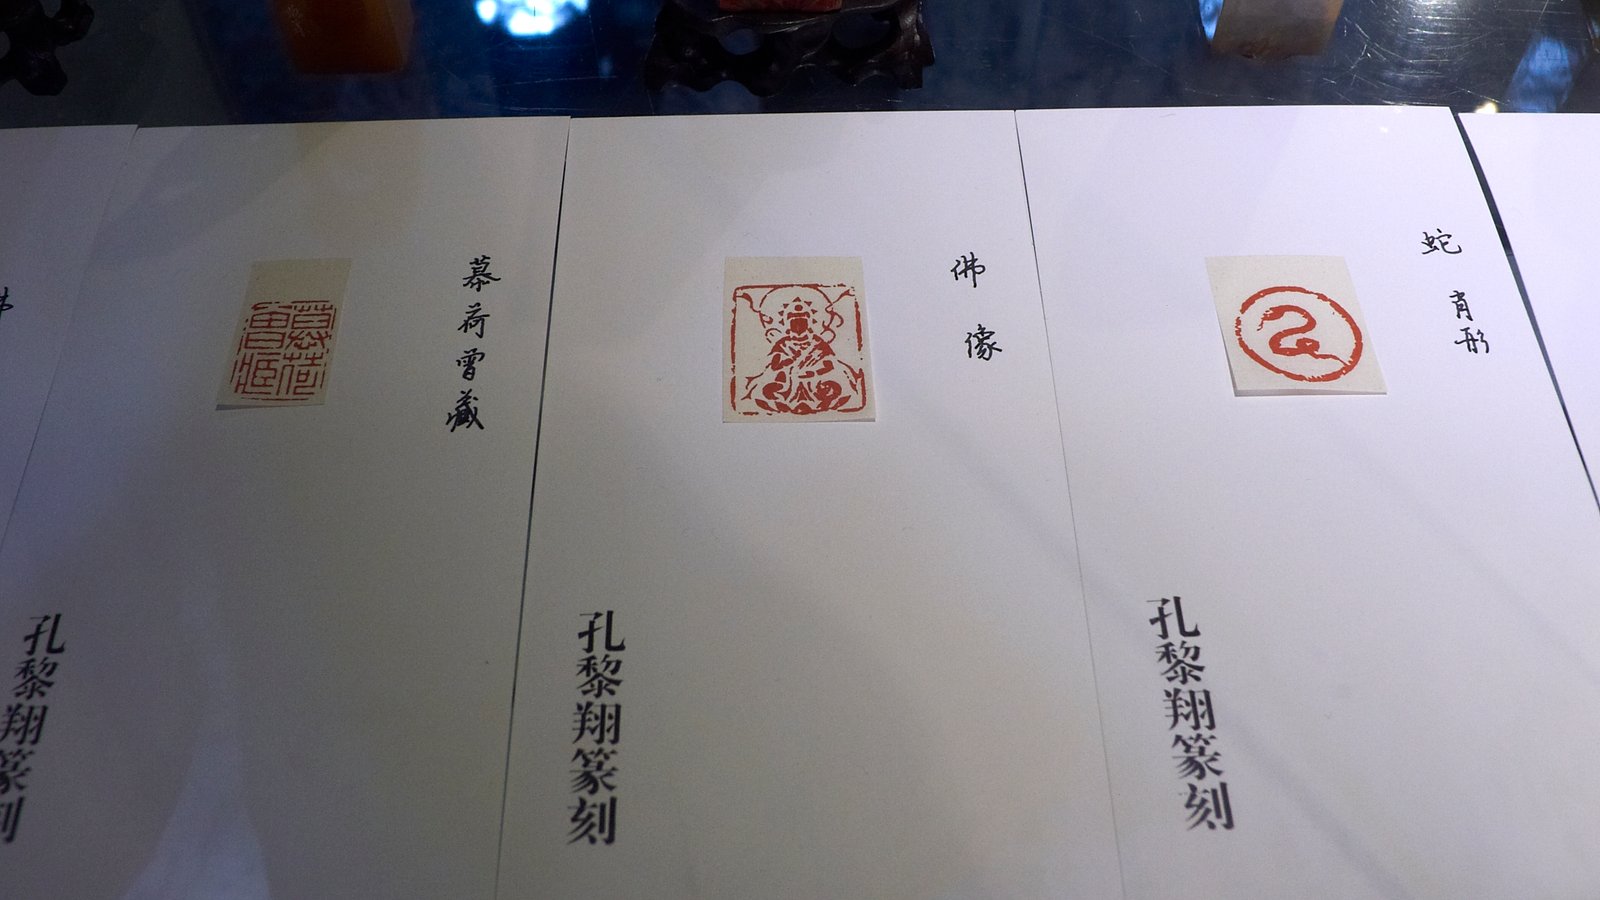 慕荷曾藏
佛像
蛇肖形
孔黎翔篆刻
孔黎翔篆刻
孔黎翔篆刻